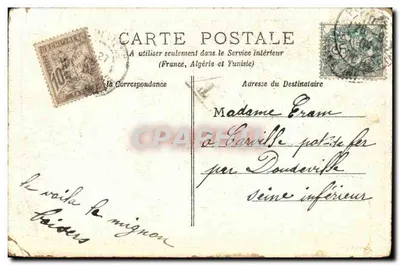 CARTE POSTALE
A utiliser seulement dans le Service Intérieur
(France, Algérie et Tunisie)
la Correspondance
Adresse du Destinataire
T
Madame Tram
à Carville pot de fer
par Doudeville
seine inférieur
le voila le mignon
baisers
10